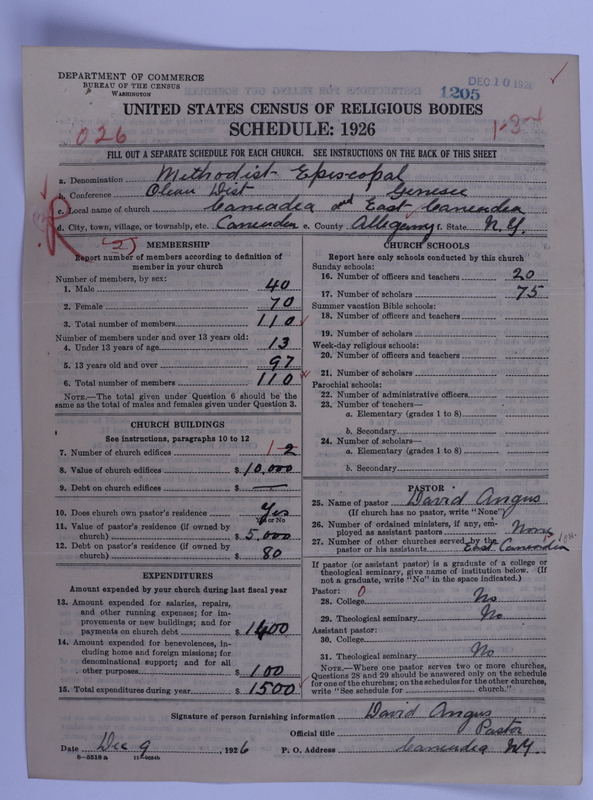 DEPARTMENT OF COMMERCE
BUREAU OF THE CENSUS
WASHINGTON
DEC 10 192
1205
UNITED STATES CENSUS OF RELIGIOUS BODIES
SCHEDULE: 1926
026
1-3
FILL OUT A SEPARATE SCHEDULE FOR EACH CHURCH. SEE INSTRUCTIONS ON THE BACK OF THIS SHEET
a. Denomination Methodist Episcopal
b. Conference Olean Dist Genesee
c. Local name of church Caneadea and East Caneadea
d. City, town, village, or township, etc. Caneadea e. County Allegany f. State N.Y.
R
(2)
MEMBERSHIP
Report number of members according to definition of
member in your church
Number of members, by sex:
1. Male 40
2. Female 70
3. Total number of members 110
Number of members under and over 13 years old:
4. Under 13 years of age 13
5. 13 years old and over 97
6. Total number of members 110
NOTE.—The total given under Question 6 should be the
same as the total of males and females given under Question 3.
CHURCH BUILDINGS
See instructions, paragraphs 10 to 12
7. Number of church edifices 1 2
8. Value of church edifices $ 10,000
9. Debt on church edifices $ —
10. Does church own pastor's residence Yes
Yes or No
11. Value of pastor's residence (if owned by
church) $ 5,000
12. Debt on pastor's residence (if owned by
church) $ 80
EXPENDITURES
Amount expended by your church during last fiscal year
13. Amount expended for salaries, repairs,
and other running expenses; for im-
provements or new buildings; and for
payments on church debt $ 1400
14. Amount expended for benevolences, in-
cluding home and foreign missions; for
denominational support; and for all
other purposes $ 100
15. Total expenditures during year $ 1500
CHURCH SCHOOLS
Report here only schools conducted by this church
Sunday schools:
16. Number of officers and teachers 20
17. Number of scholars 75
Summer vacation Bible schools:
18. Number of officers and teachers
19. Number of scholars
Week-day religious schools:
20. Number of officers and teachers
21. Number of scholars
Parochial schools:
22. Number of administrative officers
23. Number of teachers—
a. Elementary (grades 1 to 8)
b. Secondary
24. Number of scholars—
a. Elementary (grades 1 to 8)
b. Secondary
PASTOR
25. Name of pastor David Angus
(If church has no pastor, write "None")
26. Number of ordained ministers, if any, em-
ployed as assistant pastors None
27. Number of other churches served by the
pastor or his assistants East Caneadea
If pastor (or assistant pastor) is a graduate of a college or
theological seminary, give name of institution below. (If
not a graduate, write "No" in the space indicated.)
Pastor: 0
28. College No
29. Theological seminary No
Assistant pastor:
30. College
31. Theological seminary No
NOTE.—Where one pastor serves two or more churches,
Questions 28 and 29 should be answered only on the schedule
for one of the churches; on the schedules for the other churches,
write "See schedule for church."
Signature of person furnishing information David Angus
Official title Pastor
Date Dec 9, 1926 P. O. Address Caneadea N.Y.
8—5518 a